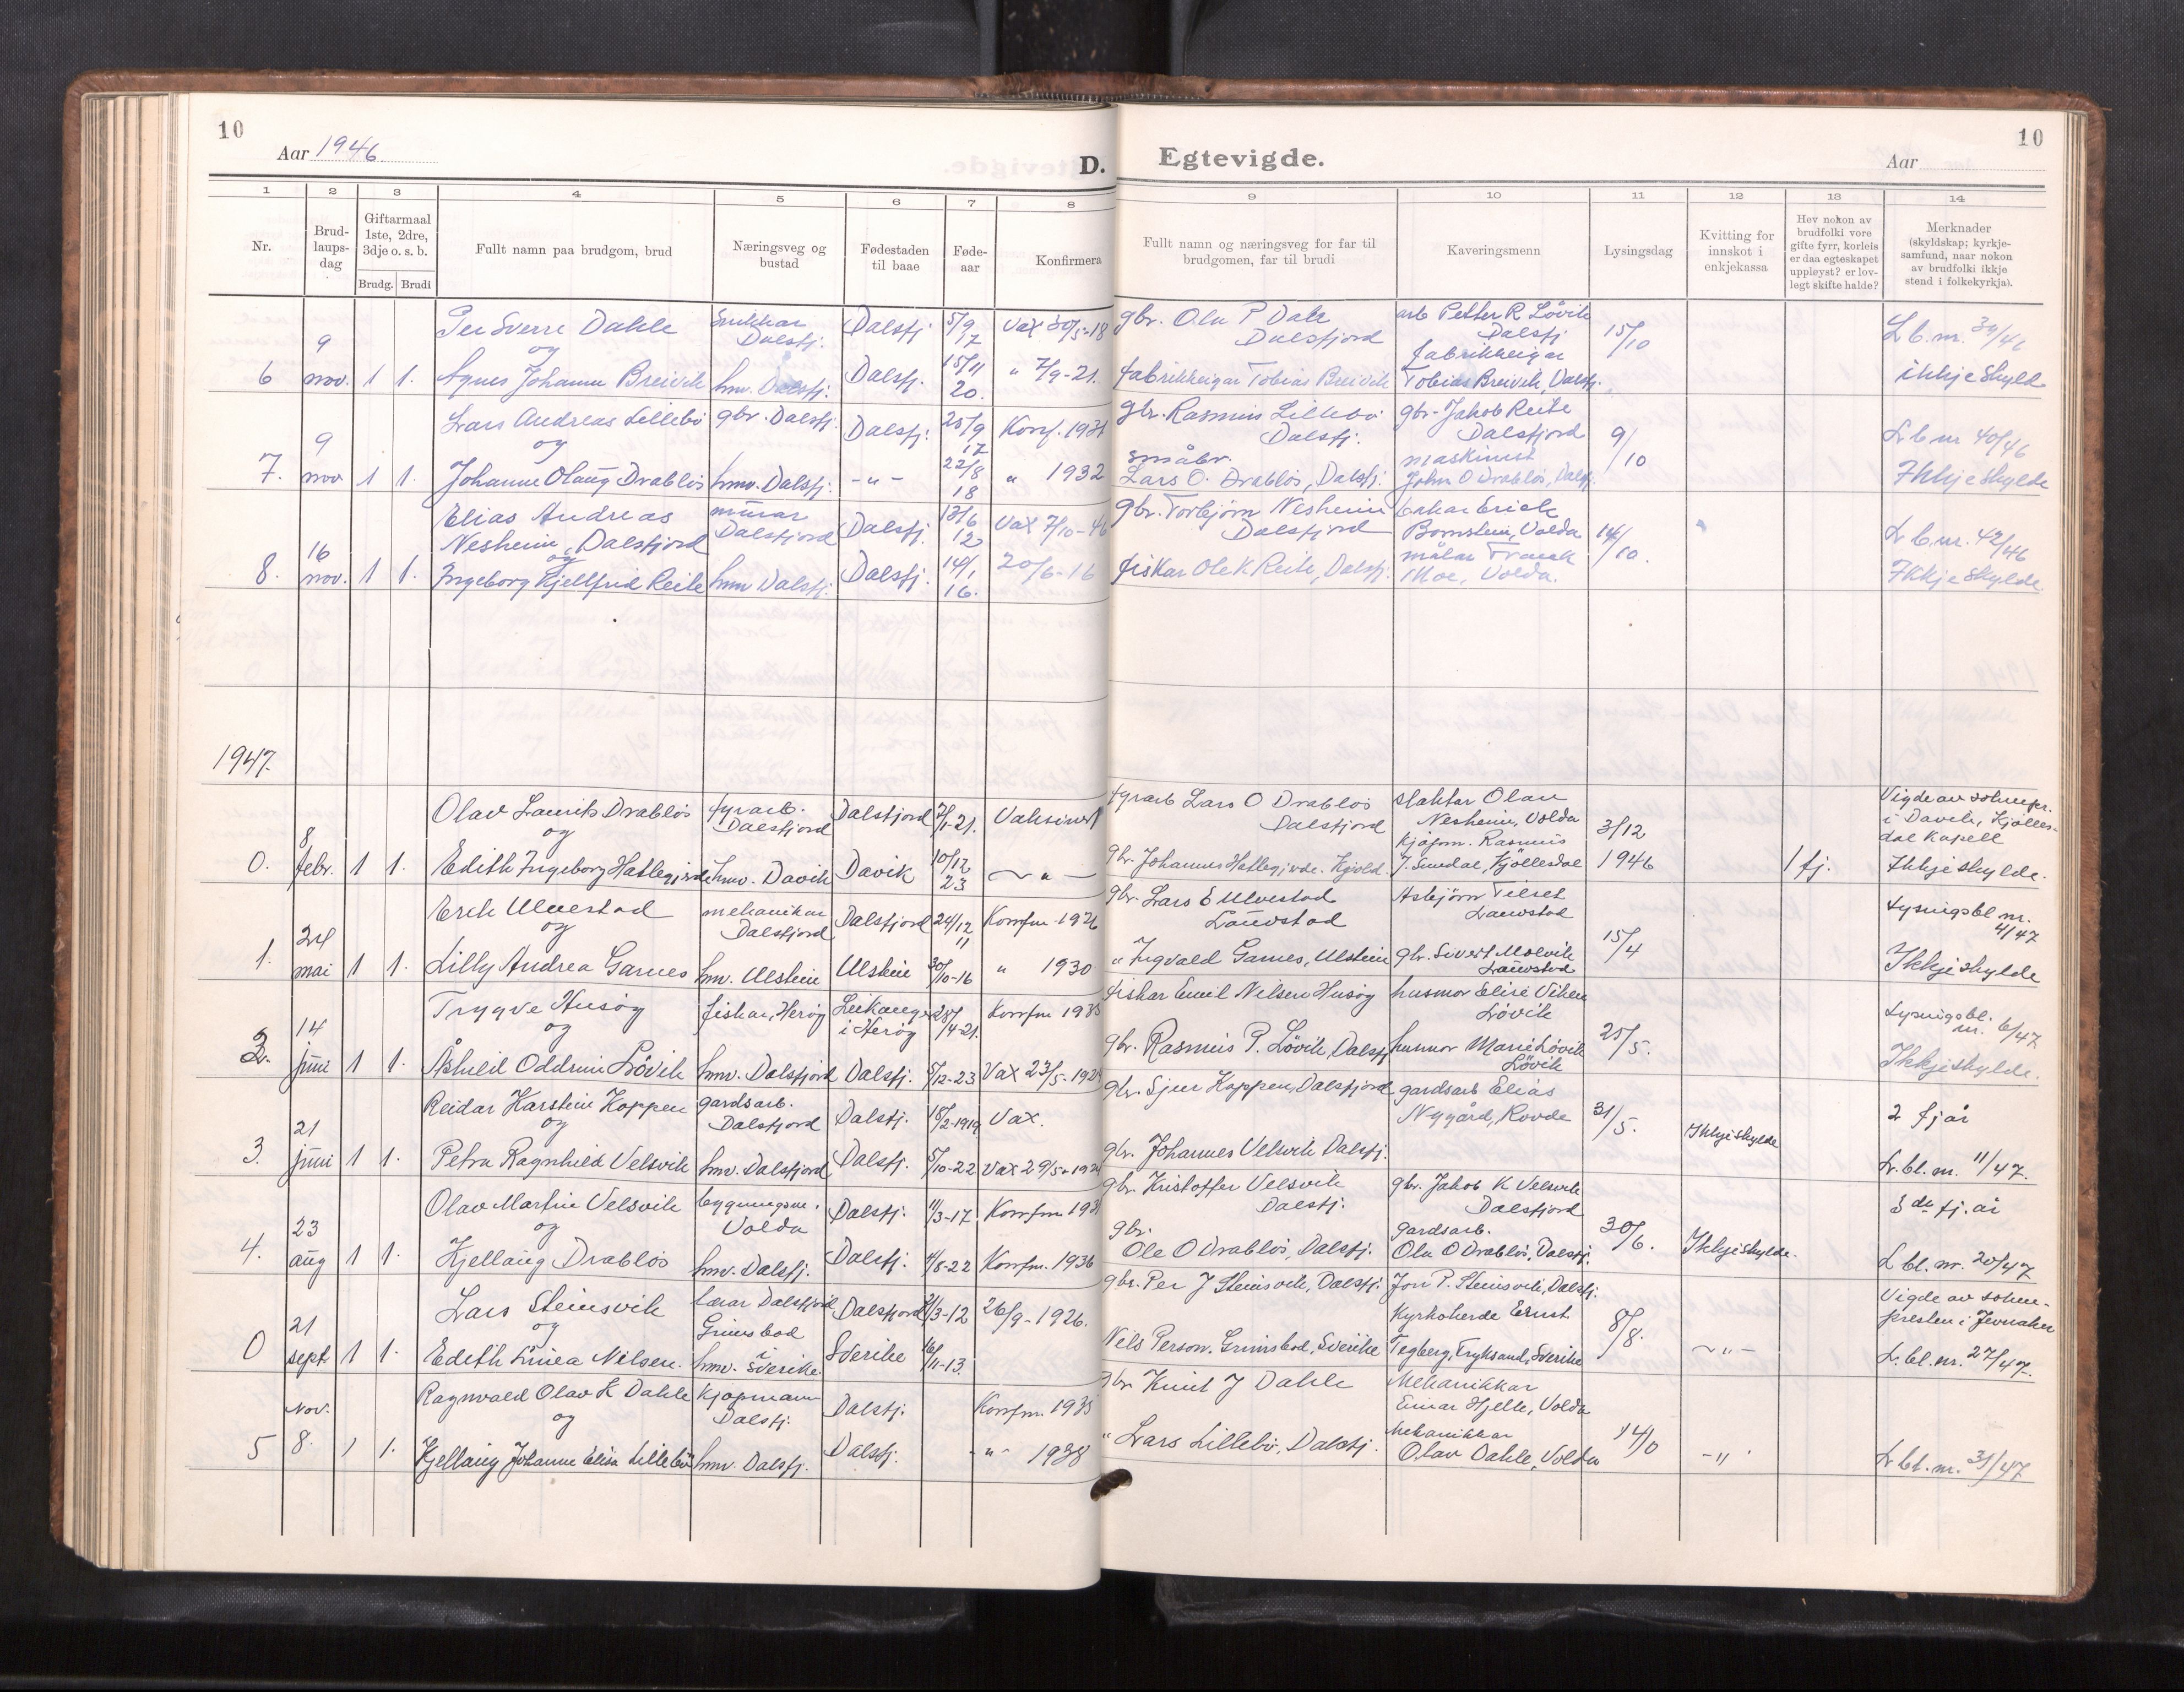 10
Aar 1946
D.
Egtevigde.
Aar
10
1 2 3 4 5 6 7 8
9 10 11 12 13 14
Nr.
Brud-
laups-
dag
Giftarmaal
1ste, 2dre,
3dje o. s. b.
Brudg. Brudi
Fullt namn paa brudgom, brud
Næringsveg og
bustad
Fødestaden
til baae
Føde-
aar
Konfirmera
Fullt namn og næringsveg for far til
brudgomen, far til brudi
Kaveringsmenn
Lysingsdag
Kvitting for
innskot i
enkjekassa
Hev nokon av
brudfolki vore
gifte fyrr, korleis
er daa egteskapet
uppløyst? er lov-
legt skifte halde?
Merknader
(skyldskap; kyrkje-
samfund, naar nokon
av brudfolki ikkje
stend i folkekyrkja).
6 9 nov. 1 1.
Per Sverre Dahle
og
Agnes Johanne Breivik
Snikkar
Dalsfj.
hmv. Dalsfj.
Dalsfj
Dalsfj.
5/9
7
15/11
20.
Vax 30/5-18
" 7/9-21.
gbr. Ola P Dale
Dalsfjord
fabrikkeigar Tobias Breivik
arb Petter R Lövik
Dalsfj
fabrikkeigar
Tobias Breivik, Dalsfj.
15/10
L b. nr. 34/46
ikkje skylde
7. 9 nov 1 1.
Lars Andreas Lillebö
og
Johanne Olaug Drablös
gbr. Dalsfj.
hmv. Dalsfj.
Dalsfj.
-"-
25/9
17
22/8
18
Konf. 1931
" 1932
gbr. Rasmus Lillebö
Dalsfj.
småbr.
Lars O. Drablös, Dalsfj.
gbr. Jakob Reite
Dalsfjord
maskinist
John O Drablös, Dalsfj.
9/10
L b nr 40/46
Ikkje skylde
8. 16 nov. 1 1.
Elias Andreas
Nesheim, Dalsfjord
og
Ingeborg Kjellfrid Reite
murar
Dalsfjord
hmv Dalsfj.
Dalsfj.
Dalsfj.
13/6
12
14/1
16.
Vax 7/10-46
20/6-16
gbr. Torbjörn Nesheim
Dalsfjord
fiskar Ole K Reite, Dalsfj.
bakar Erick
Bornstein, Volda
målar Franck
Moe, Volda.
14/10.
L b. nr. 42/46
Ikkje skylde
1947.
0. 8 febr. 1 1.
Olav Laurits Drablös
og
Edith Ingeborg Hatlegjerde
fyrarb.
Dalsfjord
hmv. Davik
Dalsfjord
Davik
7/1-21.
10/12
23
Vaksinert
— " —
fyrarb Lars O Drablös
Dalsfjord
gbr. Johannes Hatlegjerde. Kjöld.
slaktar Olav
Nesheim, Volda
kjøpm. Rasmus
J. Smedal, Kjöllesdal
3/12
1946
1 fj.
Vigde av soknepr.
i Davik, Kjölles-
dal kapell
Ikkje skylde.
1. 24 mai 1 1.
Erik Ulvestad
og
Lilly Andrea Garnes
mekanikar
Dalsfjord
hmv. Ulstein
Dalsfjord
Ulstein
24/12
11
30/10-16
Konfm 1926
" 1930
gbr. Lars E Ulvestad
Lauvstad
" Ingvald Garnes, Ulstein
Asbjörn Tilset
Lauvstad
gbr. Sivert Molvik
Lauvstad
15/4
Lysingsbl nr.
4/47
Ikkje skylde
2. 14 juni 1 1.
Trygve Husøy
og
Åshild Oddrun Lövik
fiskar, Herøy
hmv. Dalsfjord
Leikanger
i Herøy
Dalsfj.
28/4-21.
5/12-23
Konfm 1935
Vax 23/5-1929
fiskar Emil Nilsen Husøy
gbr. Rasmus P. Lövik, Dalsfj
husmor Elise Viken
Lövik
husmor Marie Lövik
Lövik
25/5.
Lysingsbl.
nr. 6/47
Ikkje skylde.
3. 21 juni 1 1.
Reidar Karstein Koppen
og
Petra Ragnhild Velsvik
gardsarb.
Dalsfjord
hmv. Dalsfjord
Dalsfj.
Dalsfj.
18/2-1919
5/10-22
Vax.
Vax 29/5-1929
gbr. Sjur Koppen, Dalsfjord
gbr. Johannes Velsvik Dalsfj.
gardsarb Elias
Nygård, Rovde
31/5.
Ikkje skylde
2 fjår
L. bl. nr. 11/47.
4. 23 aug 1 1.
Olav Martin Velsvik
og
Kjellaug Drablös
bygningsm.
Volda
hmv. Dalsfj.
Dalsfj.
Dalsfj.
11/3-17
4/8-22
Konfm 1931
Konfm. 1936
gbr. Kristoffer Velsvik
Dalsfj.
gbr.
Ole O Drablös, Dalsfj.
gbr. Jakob K Velsvik
Dalsfjord
gardsarb.
Ola O Drablös, Dalsfj.
30/6.
Ikkje skylde.
3 de fj. år
L bl. nr. 20/47
0 21 sept 1 1.
Lars Steinsvik
og
Edith Linea Nilsen.
lærar Dalsfjord
Grimsbod
hmv. i Sverike.
Dalsfjord
Sverike
21/3-12
16/11-13.
26/9-1926.
gbr. Per J Steinsvik, Dalsfj.
Nels Person. Grimsbod, Sverike
Jon P. Steinsvik, Dalsfj.
Kyrkoherde Ernst
Tegberg, Fryksand, Sverike
8/8.
-"-
Vigde av sokne-
presten i Jevnaker
L. bl. nr. 27/47.
5 Nov. 8. 1 1.
Ragnvald Olav K Dahle
og
Kjellaug Johanne Elisa Lillebö
Kjøpmann
Dalsfj.
hmv. Dalsfj.
Dalsfj.
Dalsfj.
Konfm. 1935
-"- 1938
gbr Knut J Dahle
" Lars Lillebö, Dalsfj.
Mekanikkar
Einar Hjelle, Volda
Mekanikkar
Olav Dahle, Volda
14/0
-"-
L bl. nr. 31/47